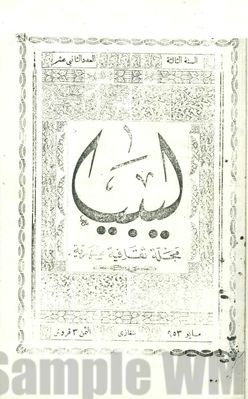 السنة الثالثة العدد الثاني عشر
ليبيا
مجلة ثقافية شهرية
مايو ١٩٥٣ بنغازي الثمن ٣ قروش
Sample Wi